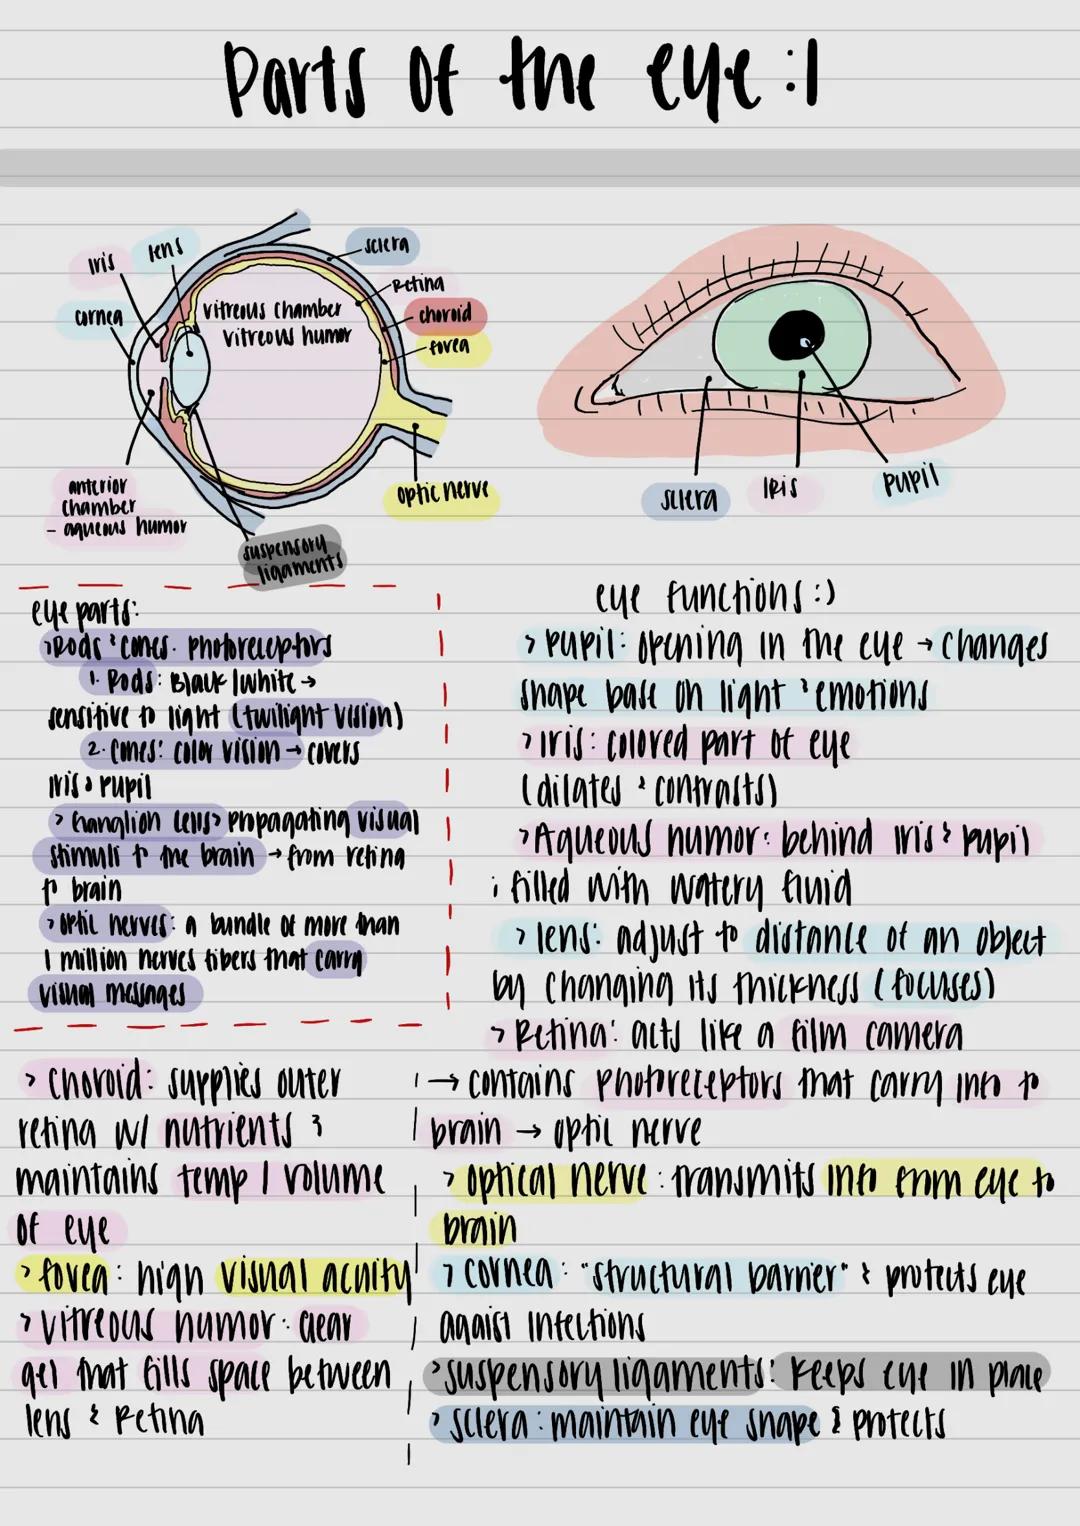 Parts of the eye :|
iris
lens
cornea
vitreous chamber
vitreous humor
sclera
Retina
choroid
fovea
optic nerve
anterior
chamber
- aqueous humor
suspensory
ligaments
sclera
Iris
pupil
eye parts:
> Rods & cones. photoreceptors
1. Rods: Black/white →
sensitive to light (twilight vision)
2. Cones: color vision → covers
iris & pupil
> Ganglion cells > propagating visual
stimuli to the brain → from retina
to brain
> optic nerves: a bundle of more than
1 million nerves fibers that carry
visual messages
> Choroid: supplies outer
retina w/ nutrients &
maintains temp / volume
of eye
> fovea: high visual acuity
> vitreous humor: clear
gel that fills space between
lens & Retina
eye functions :)
> pupil: opening in the eye → changes
shape base on light & emotions
> iris: colored part of eye
(dilates & contrasts)
> Aqueous humor: behind iris & pupil
; filled with watery fluid
> lens: adjust to distance of an object
by changing its thickness (focuses)
> Retina: acts like a film camera
→ contains photoreceptors that carry info to
brain → optic nerve
> optical nerve: transmits info from eye to
brain
> cornea: "structural barrier" & protects eye
agaist infections
> suspensory ligaments: keeps eye in place
> sclera: maintain eye shape & protects